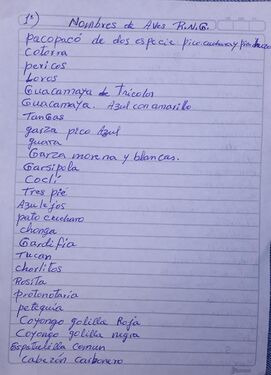 1º) Nombres de Aves R.N.G.
pacopacó de dos especie pico
Cotorra
pericos
Loros
Guacamaya de Tricolor
Guacamaya. Azul con amarillo
Tangas
garza pico Azul
guarra
Garza morena y blancas.
Garsipola
Coclí
Tres pie
Azulejos
pato cucharo
chonga
Gardifía
Tucan
chorlitos
Rosita
protonotaria
peteguia
Coyongo golilla Roja
Coyongo golilla negra
Espatulilla comun
Cabezón carbonero